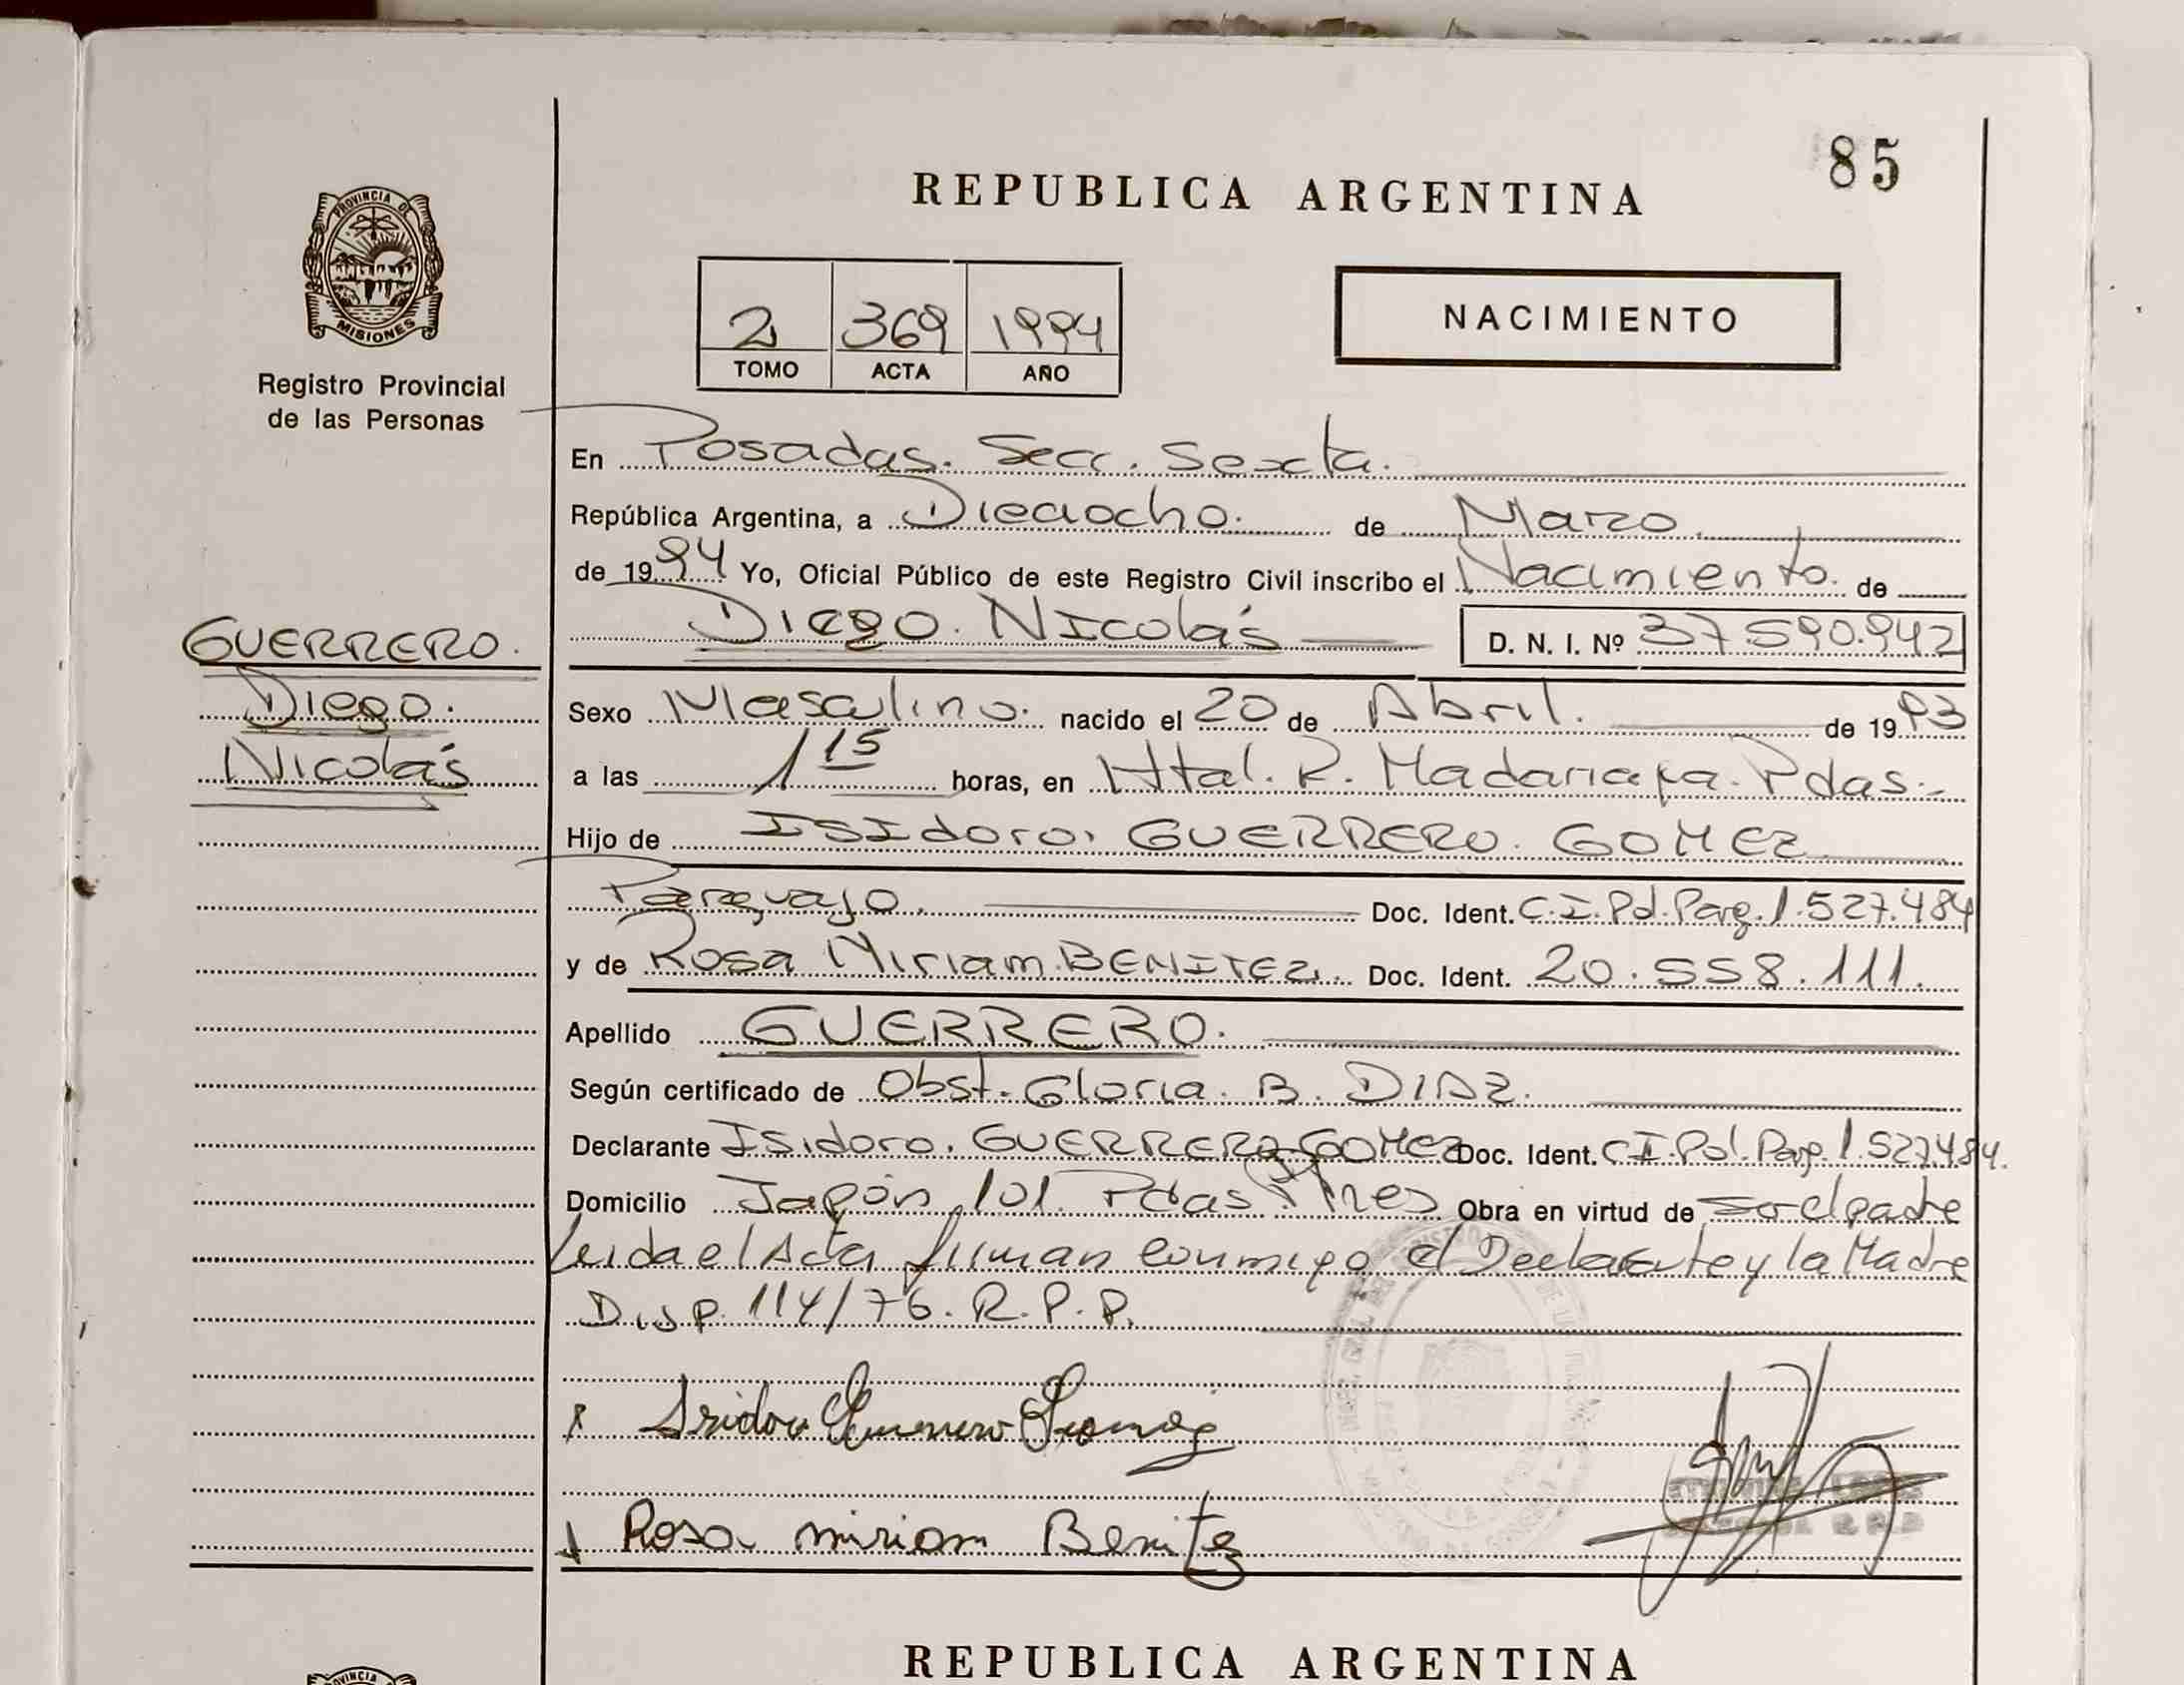 85
REPUBLICA ARGENTINA
PROVINCIA DE
MISIONES
Registro Provincial
de las Personas
2 369 1994
TOMO ACTA AÑO
NACIMIENTO
En Posadas. Secc. Sexta.
República Argentina, a Dieciocho. de Marzo
de 1994 Yo, Oficial Público de este Registro Civil inscribo el Nacimiento. de
Diego. Nicolás D. N. I. Nº 37.590.942
GUERRERO.
Diego.
Nicolás
Sexo Masculino. nacido el 20 de Abril. de 1993
a las 1 15 horas, en Htal. R. Madariaga. Pdas.-
Hijo de Isidoro. GUERRERO. GOMEZ
Paraguayo. Doc. Ident. C.I. Pol. Parg. 1.527.484
y de Rosa Miriam. BENITEZ. Doc. Ident. 20.558.111.
Apellido GUERRERO.
Según certificado de Obst. Gloria. B. DIAZ.
Declarante Isidoro. GUERRERO GOMEZ Doc. Ident. C.I. Pol. Parg. 1.527.484.
Domicilio Japón 101. Pdas Mnes Obra en virtud de ser el padre
Leida el Acta firman conmigo el Declarante y la Madre
Disp. 114/76. R.P.P.
x Isidoro Guerrero Gomez
Rosa miriam Benitez
REPUBLICA ARGENTINA